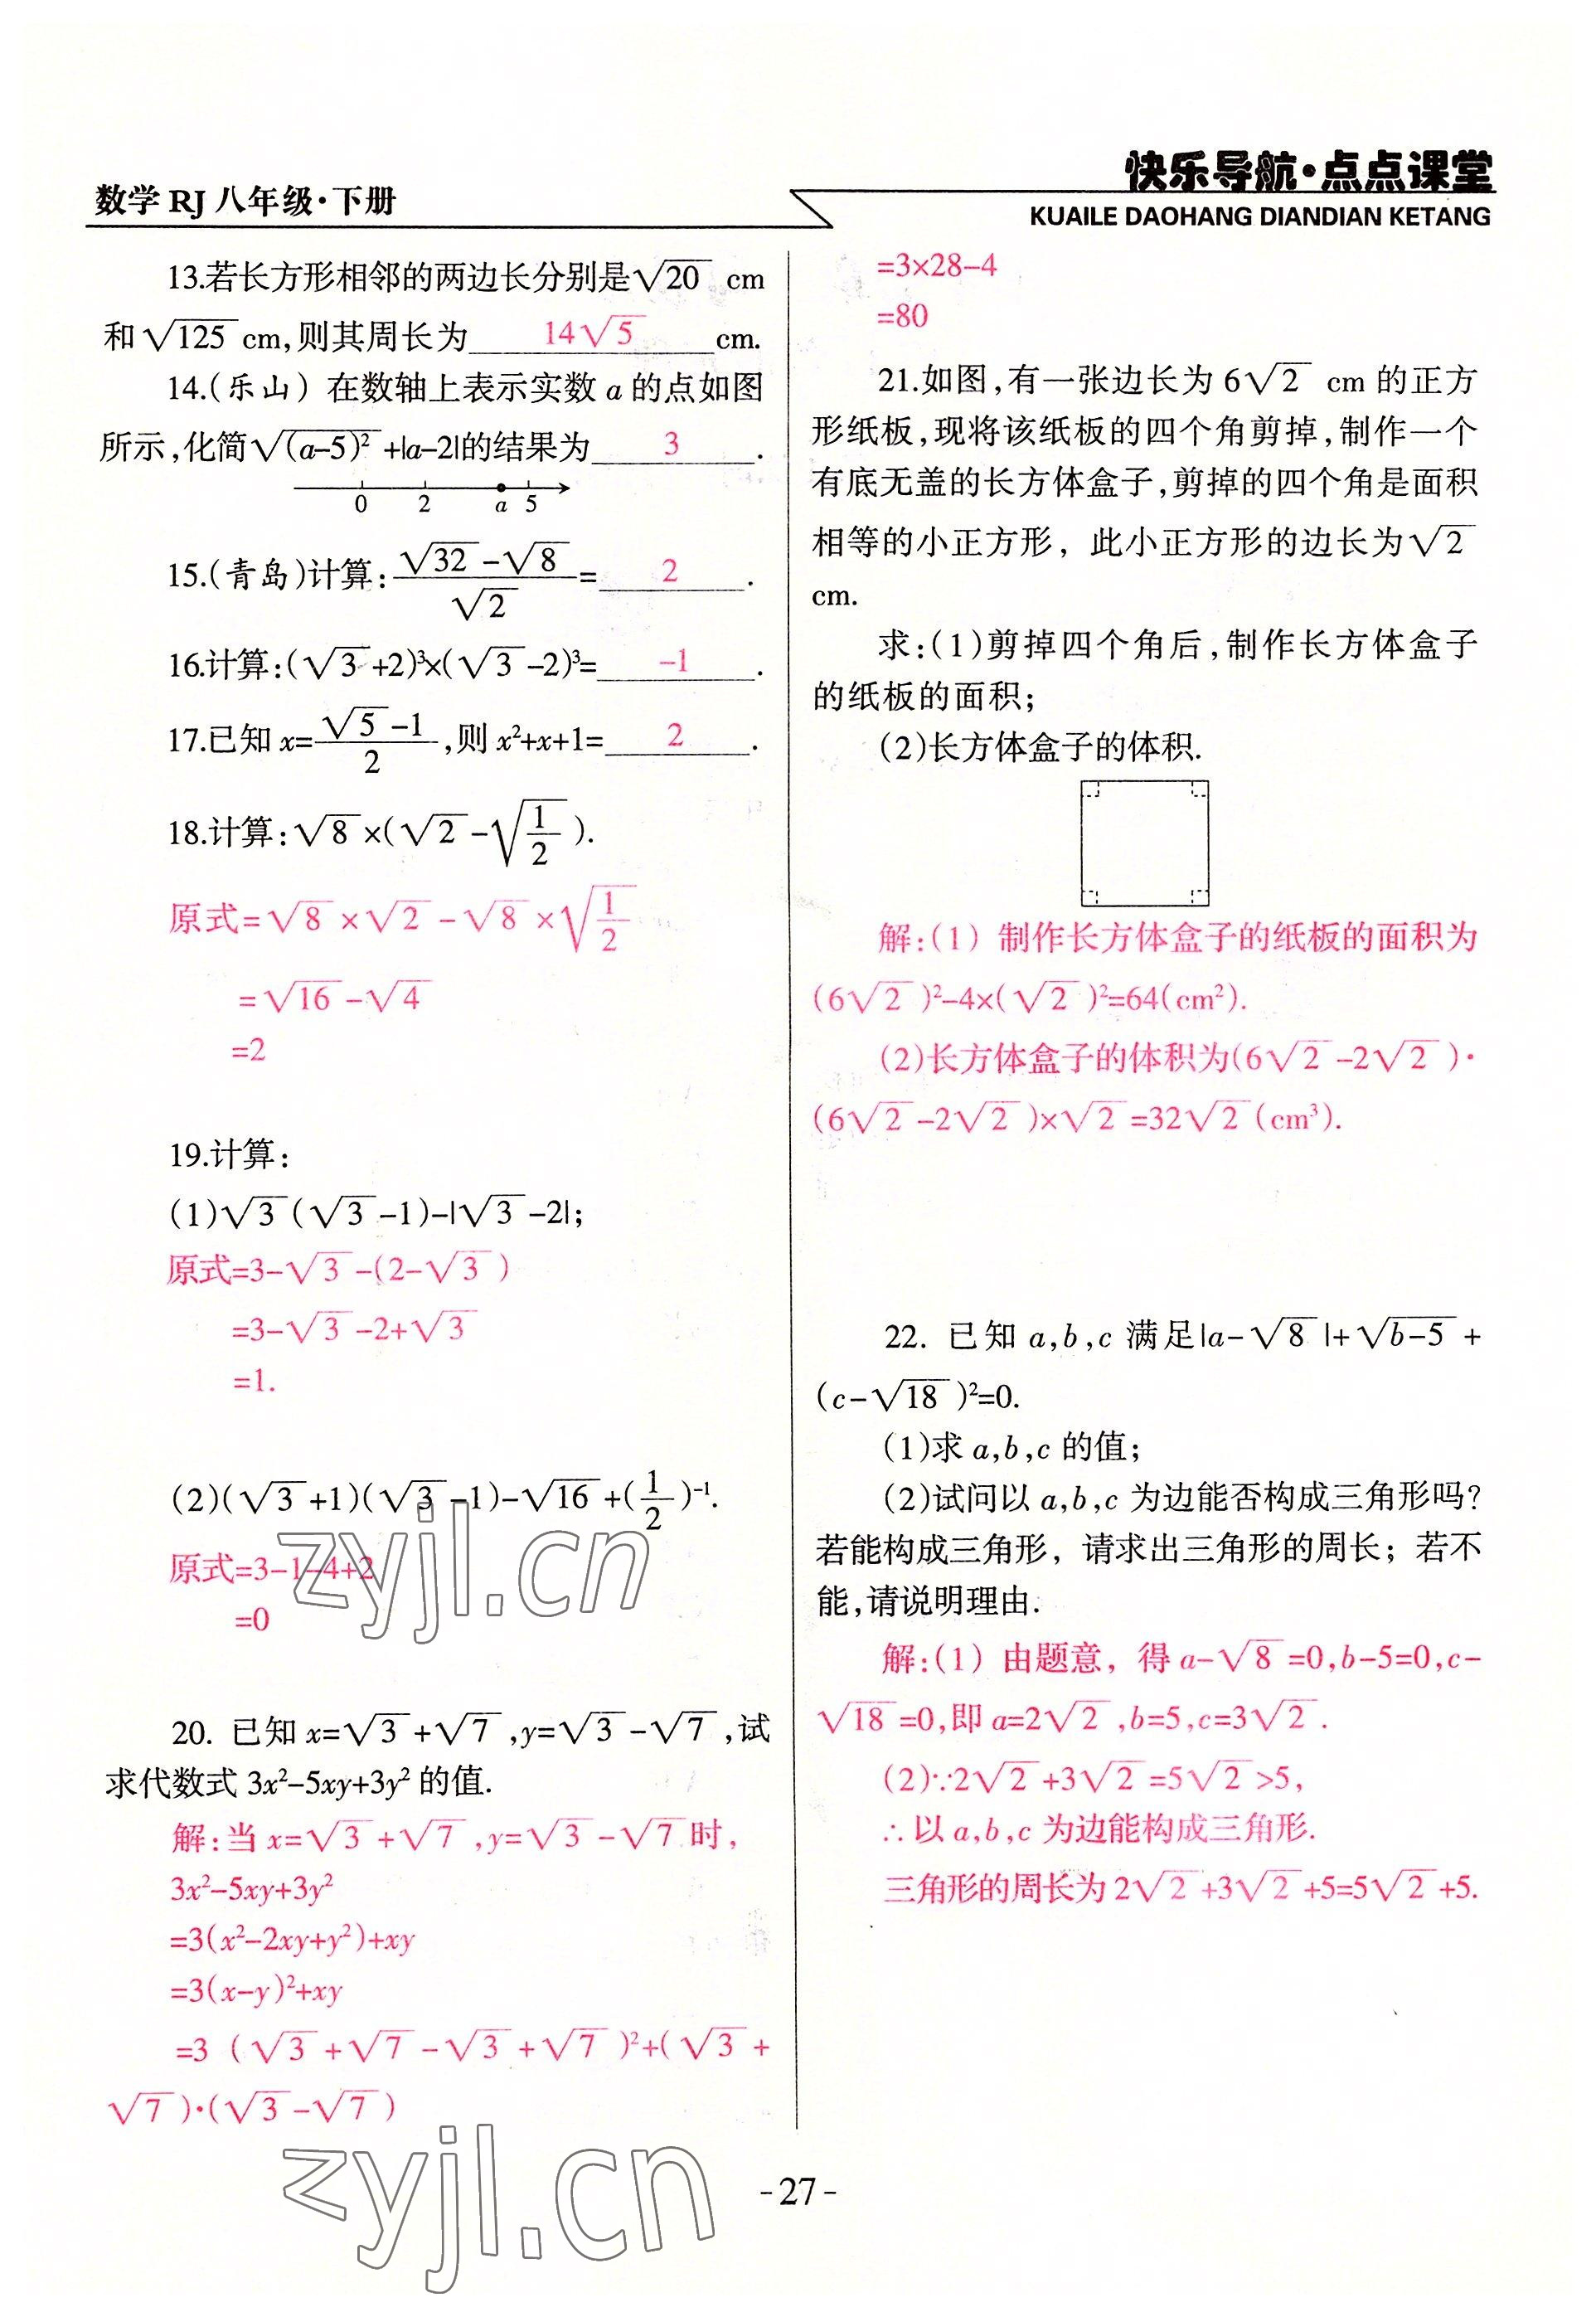 数学 RJ 八年级·下册
快乐导航·点点课堂
KUAILE DAOHANG DIANDIAN KETANG
13.若长方形相邻的两边长分别是√20 cm
和√125 cm,则其周长为 14√5 cm.
14.(乐山) 在数轴上表示实数 a 的点如图
所示,化简√(a-5)² +|a-2|的结果为 3 .
0 2 a 5
15.(青岛)计算:(√32-√8)/√2= 2 .
16.计算:(√3+2)³×(√3-2)³= -1 .
17.已知 x=(√5-1)/2,则 x²+x+1= 2 .
18.计算:√8×(√2-√(1/2)).
原式=√8×√2-√8×√(1/2)
=√16-√4
=2
19.计算:
(1)√3(√3-1)-|√3-2|;
原式=3-√3-(2-√3)
=3-√3-2+√3
=1.
(2)(√3+1)(√3-1)-√16+(1/2)⁻¹.
原式=3-1-4+2
=0
20. 已知 x=√3+√7,y=√3-√7,试
求代数式 3x²-5xy+3y² 的值.
解:当 x=√3+√7,y=√3-√7时,
3x²-5xy+3y²
=3(x²-2xy+y²)+xy
=3(x-y)²+xy
=3 (√3+√7-√3+√7)²+(√3+
√7)·(√3-√7)
=3×28-4
=80
21.如图,有一张边长为 6√2 cm 的正方
形纸板,现将该纸板的四个角剪掉,制作一个
有底无盖的长方体盒子,剪掉的四个角是面积
相等的小正方形, 此小正方形的边长为√2
cm.
求:(1)剪掉四个角后,制作长方体盒子
的纸板的面积;
(2)长方体盒子的体积.
解:(1) 制作长方体盒子的纸板的面积为
(6√2)²-4×(√2)²=64(cm²).
(2)长方体盒子的体积为(6√2-2√2)·
(6√2-2√2)×√2=32√2(cm³).
22. 已知 a,b,c 满足|a-√8|+√(b-5)+
(c-√18)²=0.
(1)求 a,b,c 的值;
(2)试问以 a,b,c 为边能否构成三角形吗?
若能构成三角形, 请求出三角形的周长; 若不
能,请说明理由.
解:(1) 由题意, 得 a-√8=0,b-5=0,c-
√18=0,即 a=2√2,b=5,c=3√2.
(2)∵2√2+3√2=5√2>5,
∴以 a,b,c 为边能构成三角形.
三角形的周长为 2√2+3√2+5=5√2+5.
zyjl.cn
zyjl.cn
-27-